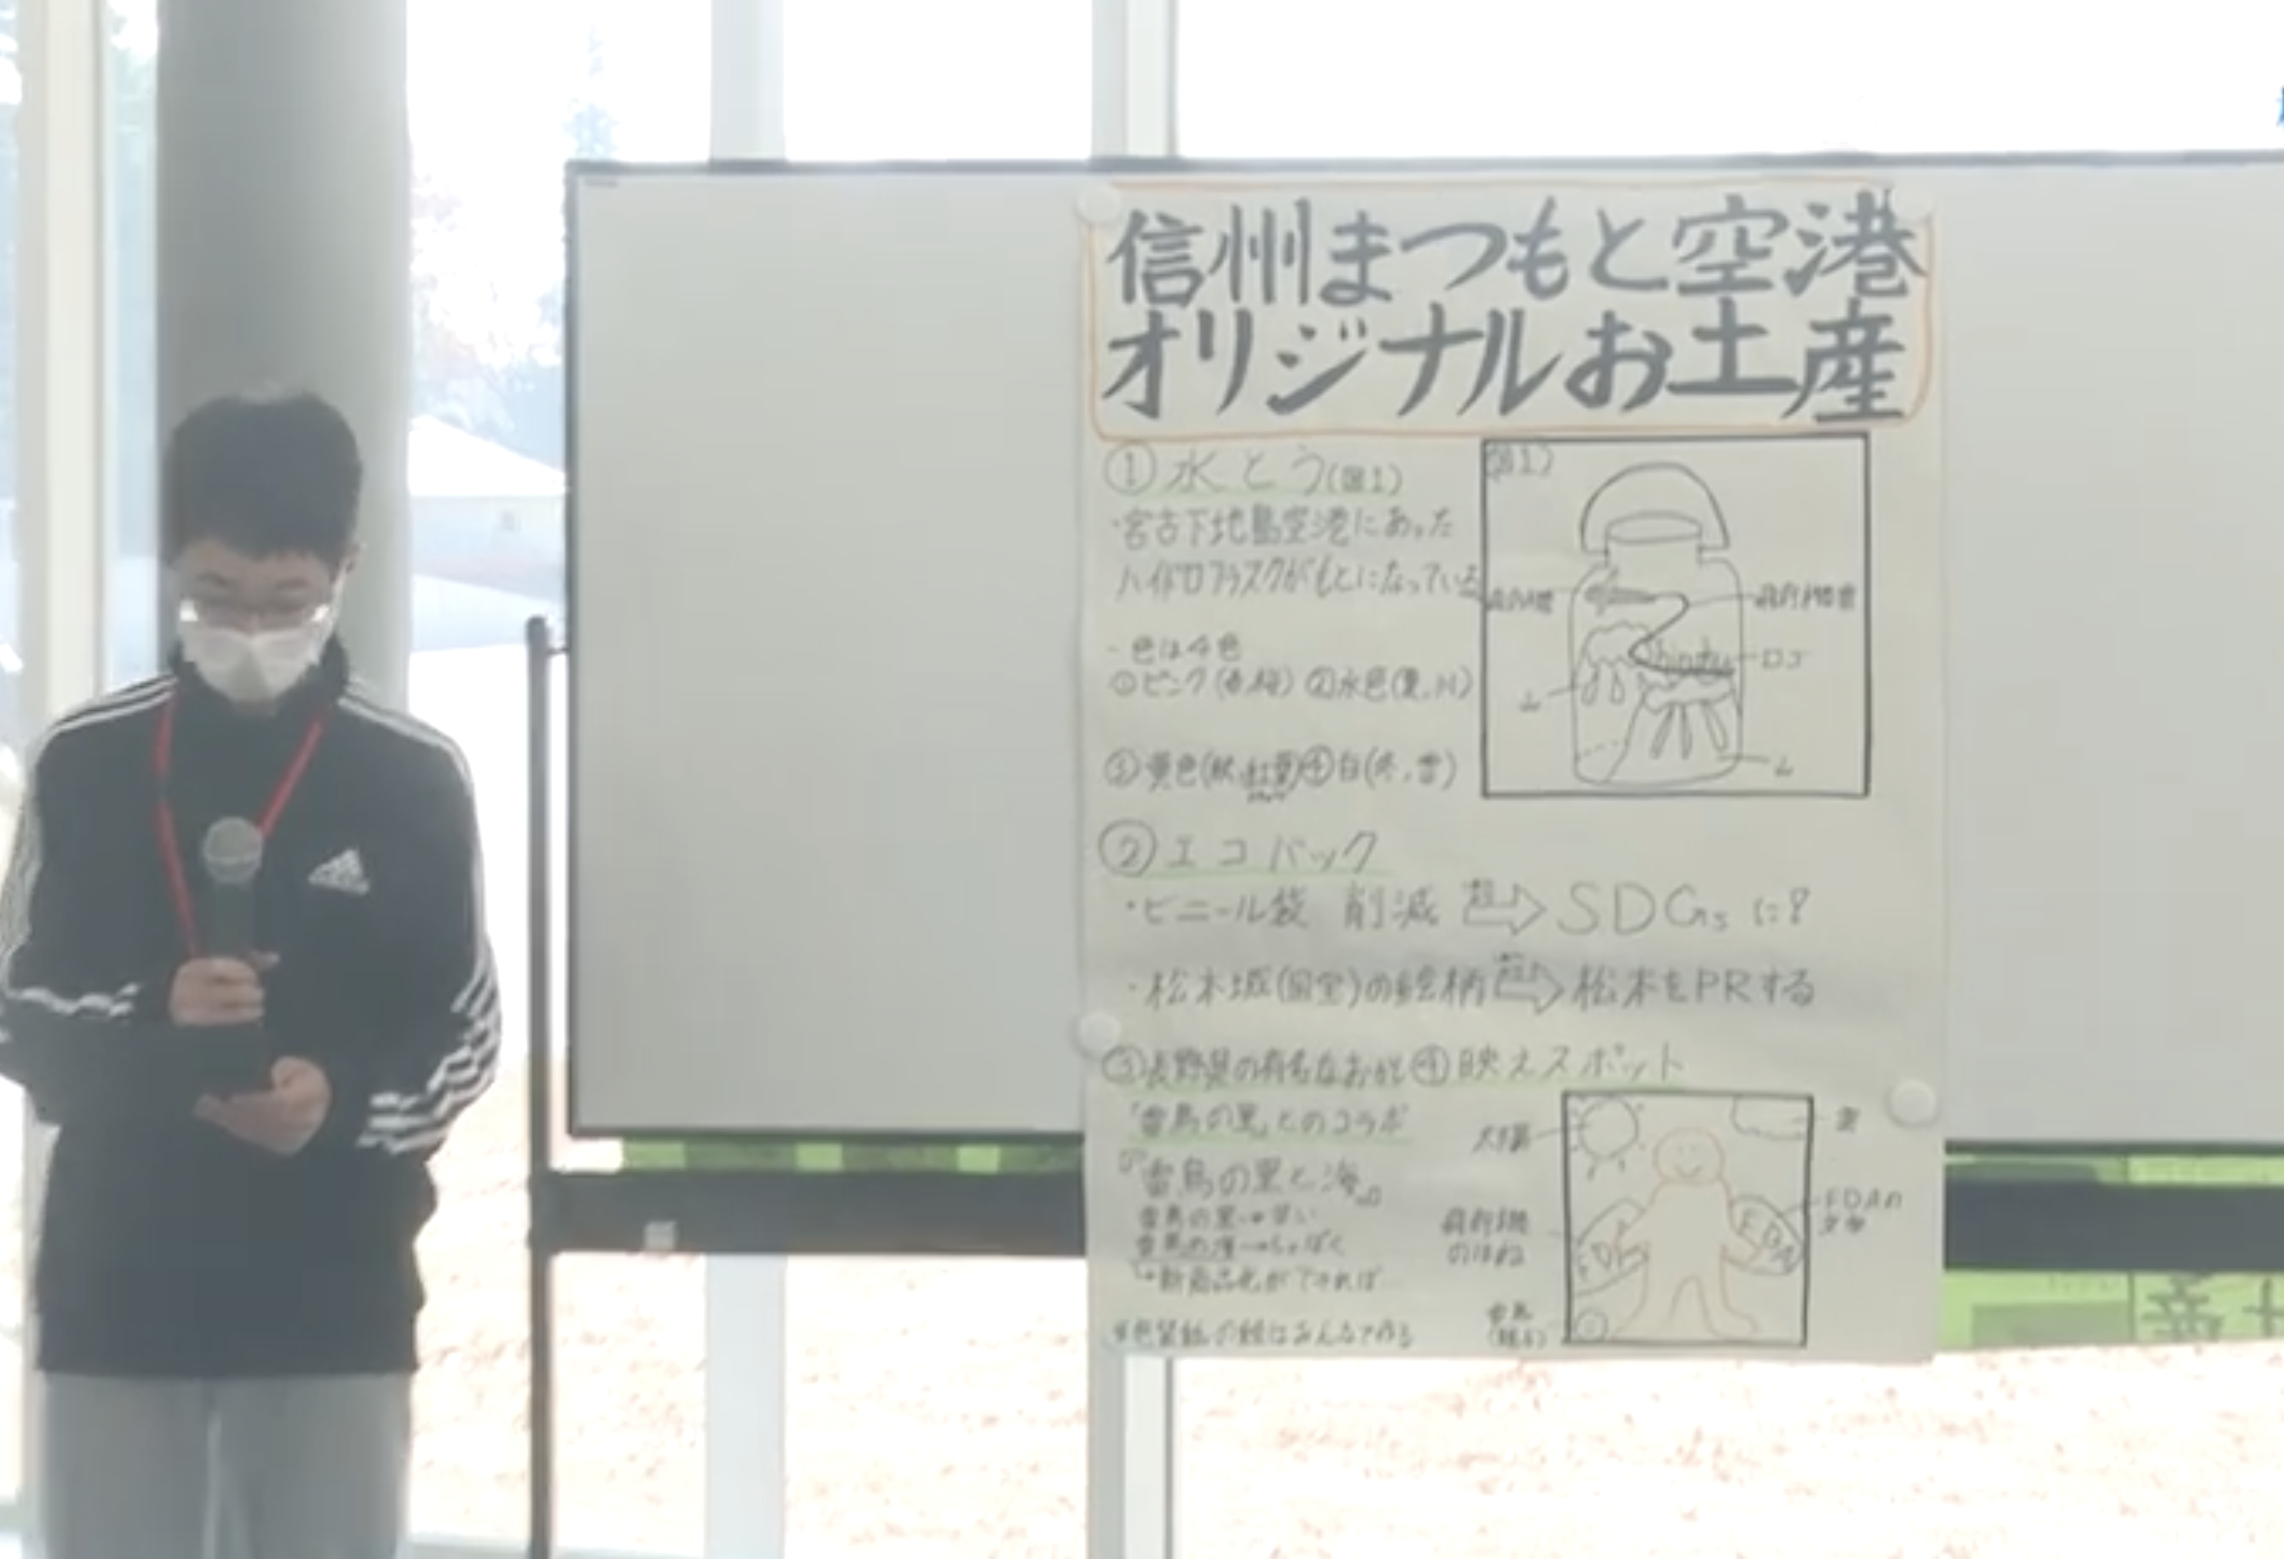 信州まつもと空港
オリジナルお土産
①水とう(図1)
・宮古下地島空港にあった
ハイドロフラスクがもとになっている
・色は4色
①ピンク(春,桜) ②水色(夏,川)
③黄色(秋,紅葉)④白(冬,雪)
(図1)
飛行機雲
ロゴ
山
②エコバック
・ビニール袋 削減 SDGsに?
・松本城(国宝)の絵柄 松本をPRする
③長野県の有名なおかし
「雷鳥の里」とのコラボ
『雷鳥の里と海』
雷鳥の里→甘い
雷鳥の海→しょっぱく
新商品化ができれば
④映えスポット
太陽
雲
飛行機
のはね
FDAの
FDA
adidas